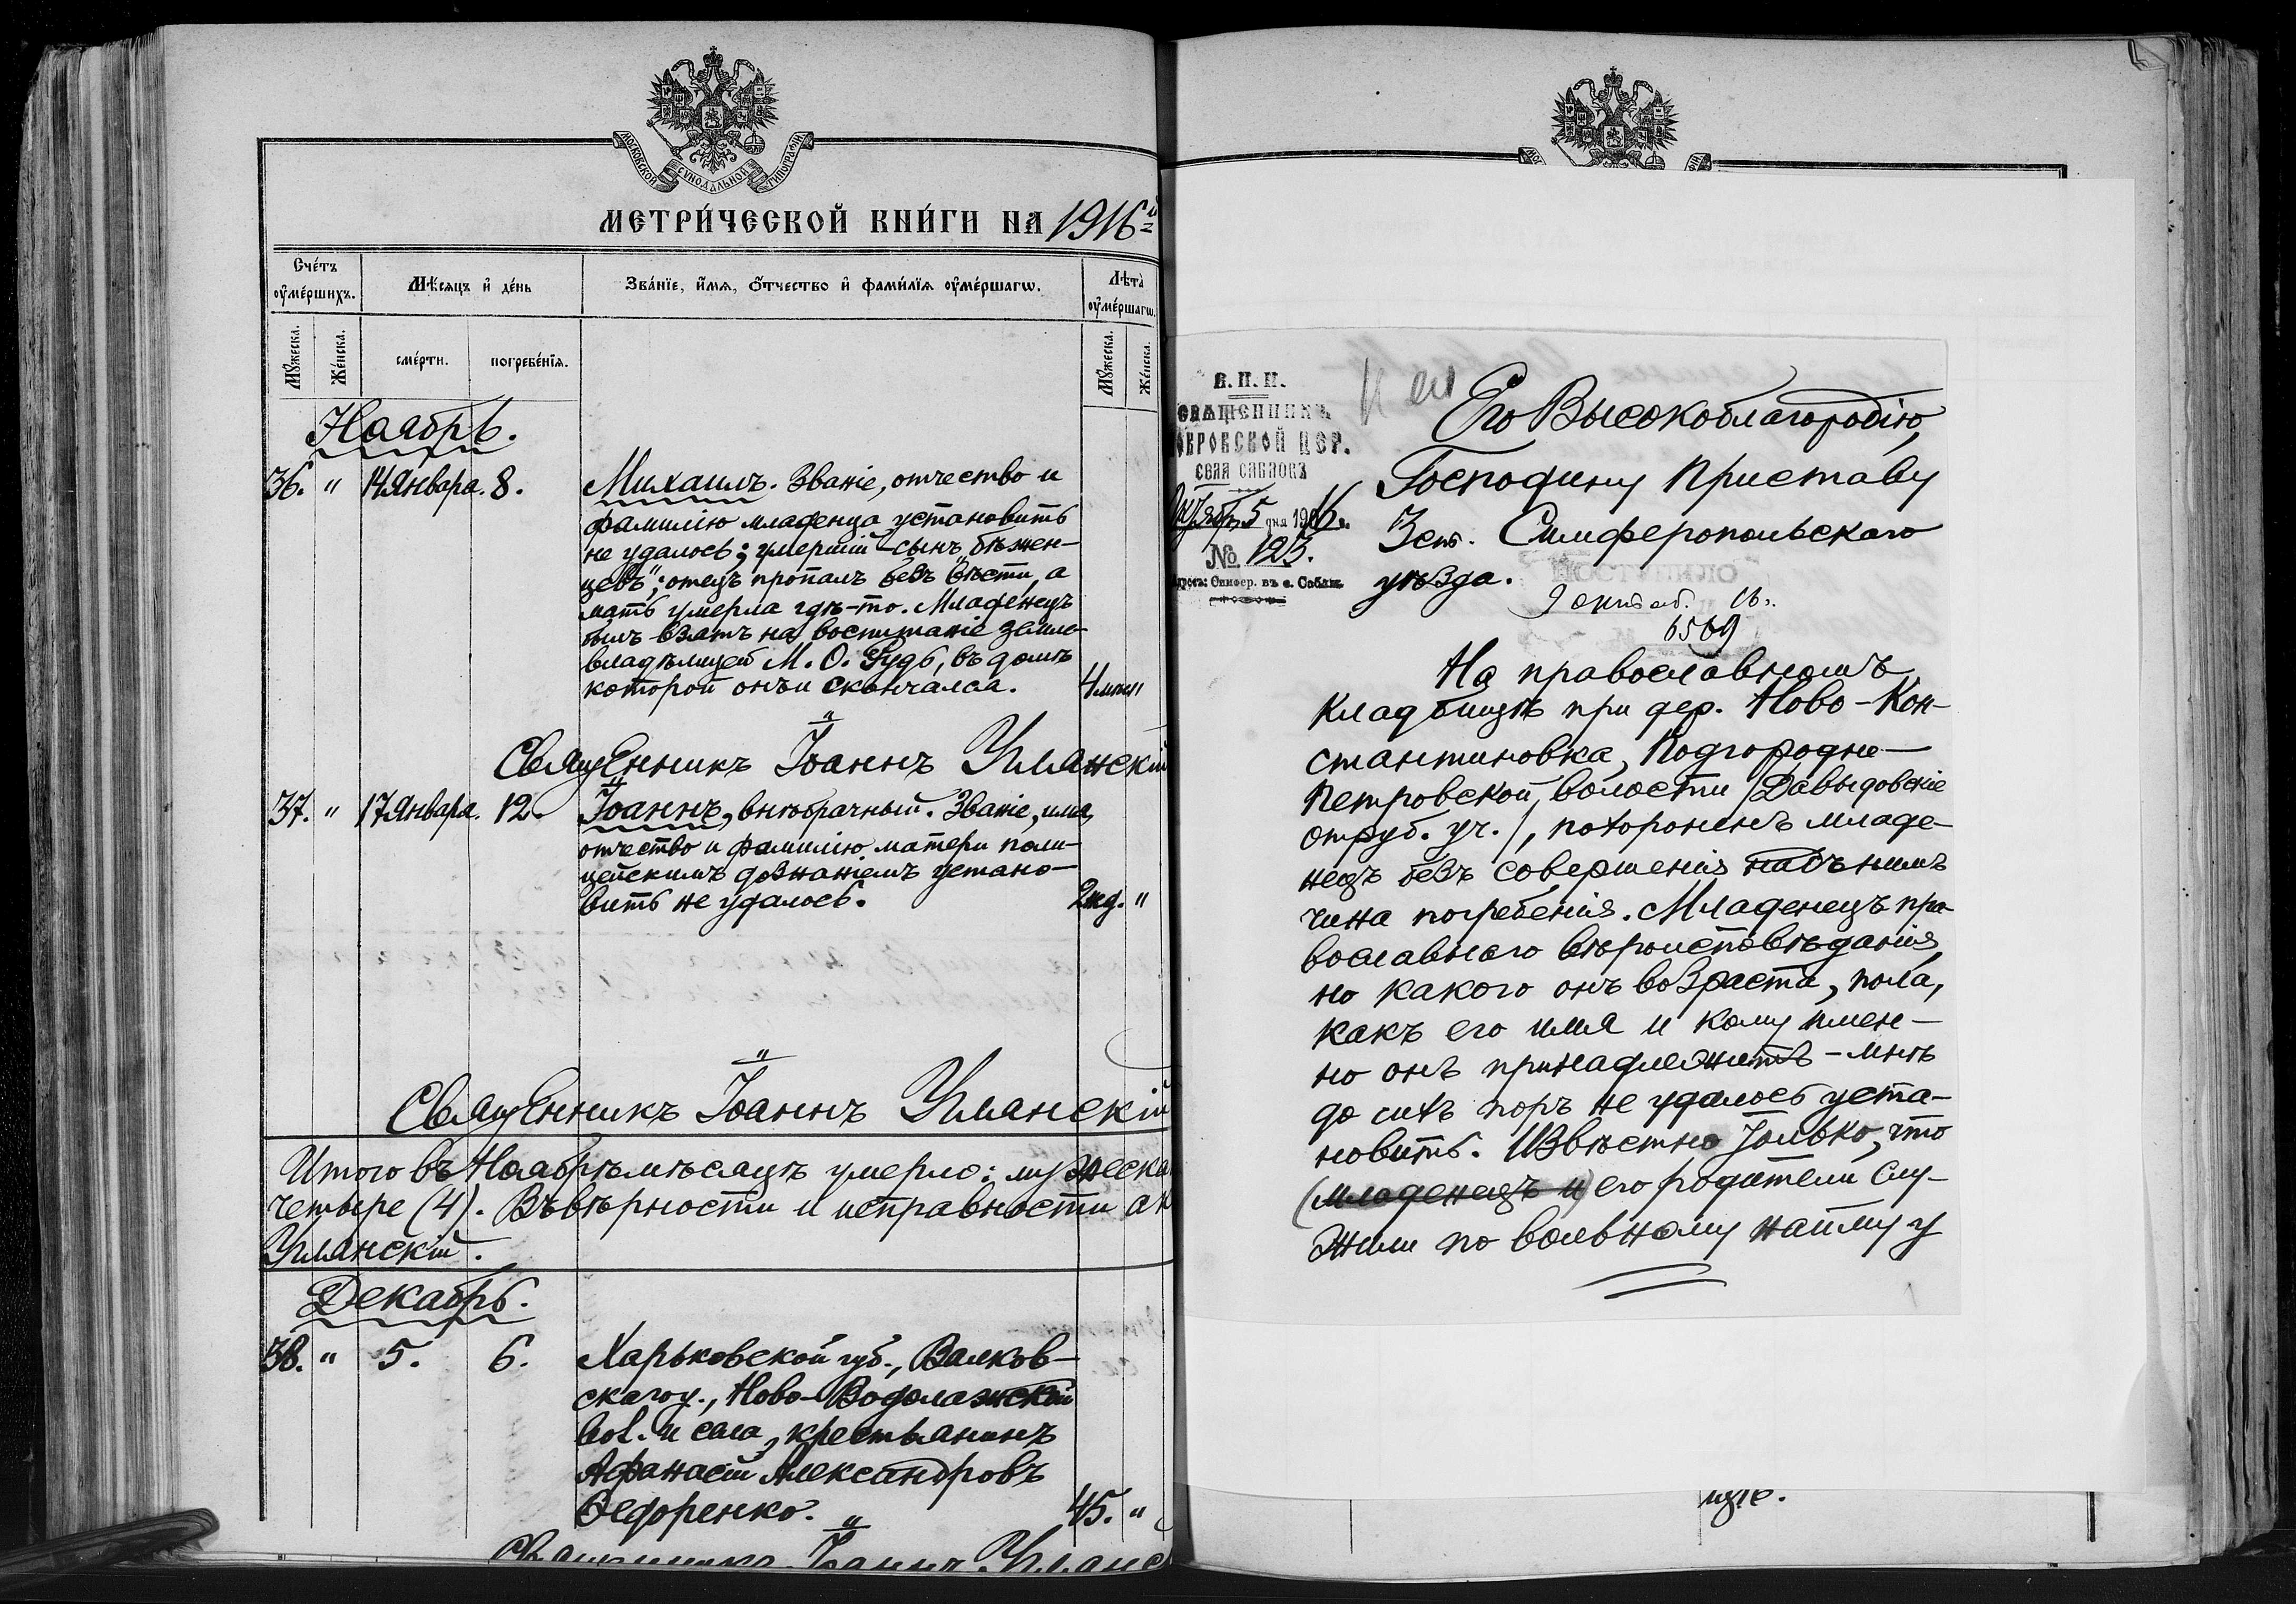 МОСКОВСКОЙ СѴНОДАЛЬНОЙ ТИПОГРАФІИ
МЕТРИ́ЧЕСКОЙ КНИ́ГИ НА 1916й
Сче́тъ ᲂу҆ме́ршихъ.
Мѣ́сяцъ и҆ де́нь
Зва́нїе, и҆́мѧ, ѻ҆́тчество и҆ фами́лїѧ ᲂу҆ме́ршагѡ.
Лѣта̀ ᲂу҆ме́ршагѡ.
Мꙋ́жеска.
Же́нска.
сме́рти.
погребе́нїѧ.
Мꙋ́жеска.
Же́нска.
Ноябрь.
36. " 14 Января. 8. Михаилъ. Званіе, отчество и
фамилію младенца установить
не удалось; умершій – сынъ „бѣжен-
цевъ"; отецъ пропалъ безъ вѣсти, а
мать умерла гдѣ-то. Младенецъ
былъ взятъ на воспитаніе земле-
владѣлицей М. О. Гудъ, въ домѣ
которой онъ и скончался. 4 мѣс. "
Священникъ Іоаннъ Углянскій
37. " 17 Января. 12. Іоаннъ, внѣбрачный. Званіе, имя,
отчество и фамилію матери поли-
цейскимъ дознаніемъ устано-
вить не удалось. 2 нед. "
Священникъ Іоаннъ Углянскій
Итого въ Ноябрѣ мѣсяцѣ умерло: мужеска
четыре (4). Въ вѣрности и исправности ак
Углянскій.
Декабрь.
38. " 5. 6. Харьковской губ., Валков-
скаго у., Ново-Водолажской
вол. и села, крестьянинъ
Афанасій Александровъ
Ѳедоренко. 45. "
Священникъ Іоаннъ Углянс
В. П. И.
СВЯЩЕННИКЪ
ОКРОВСКОЙ ЦЕР.
СЕЛА САБЛОВЪ
Октябр. 5 дня 1916 г.
№ 123.
дресъ: Симфер. въ с. Саблы.
Его Высокоблагородію,
Господину Приставу
3 ст. Симферопольскаго
уѣзда.
ПОСТУПИЛО
9 октяб. 16 г.
6569
На православномъ
кладбищѣ при дер. Ново-Кон-
стантиновка, Подгородне-
Петровской волости /Давыдовскіе
отруб. уч./, похороненъ младе-
нецъ безъ совершенія надъ нимъ
чина погребенія. Младенецъ пра-
вославнаго вѣроисповѣданія,
но какого онъ возраста, пола,
какъ его имя и кому имен-
но онъ принадлежитъ – мнѣ
до сихъ поръ не удалось уста-
новить. Извѣстно только, что
(младенецъ и) его родители слу-
жили по вольному найму у
ицѣ.